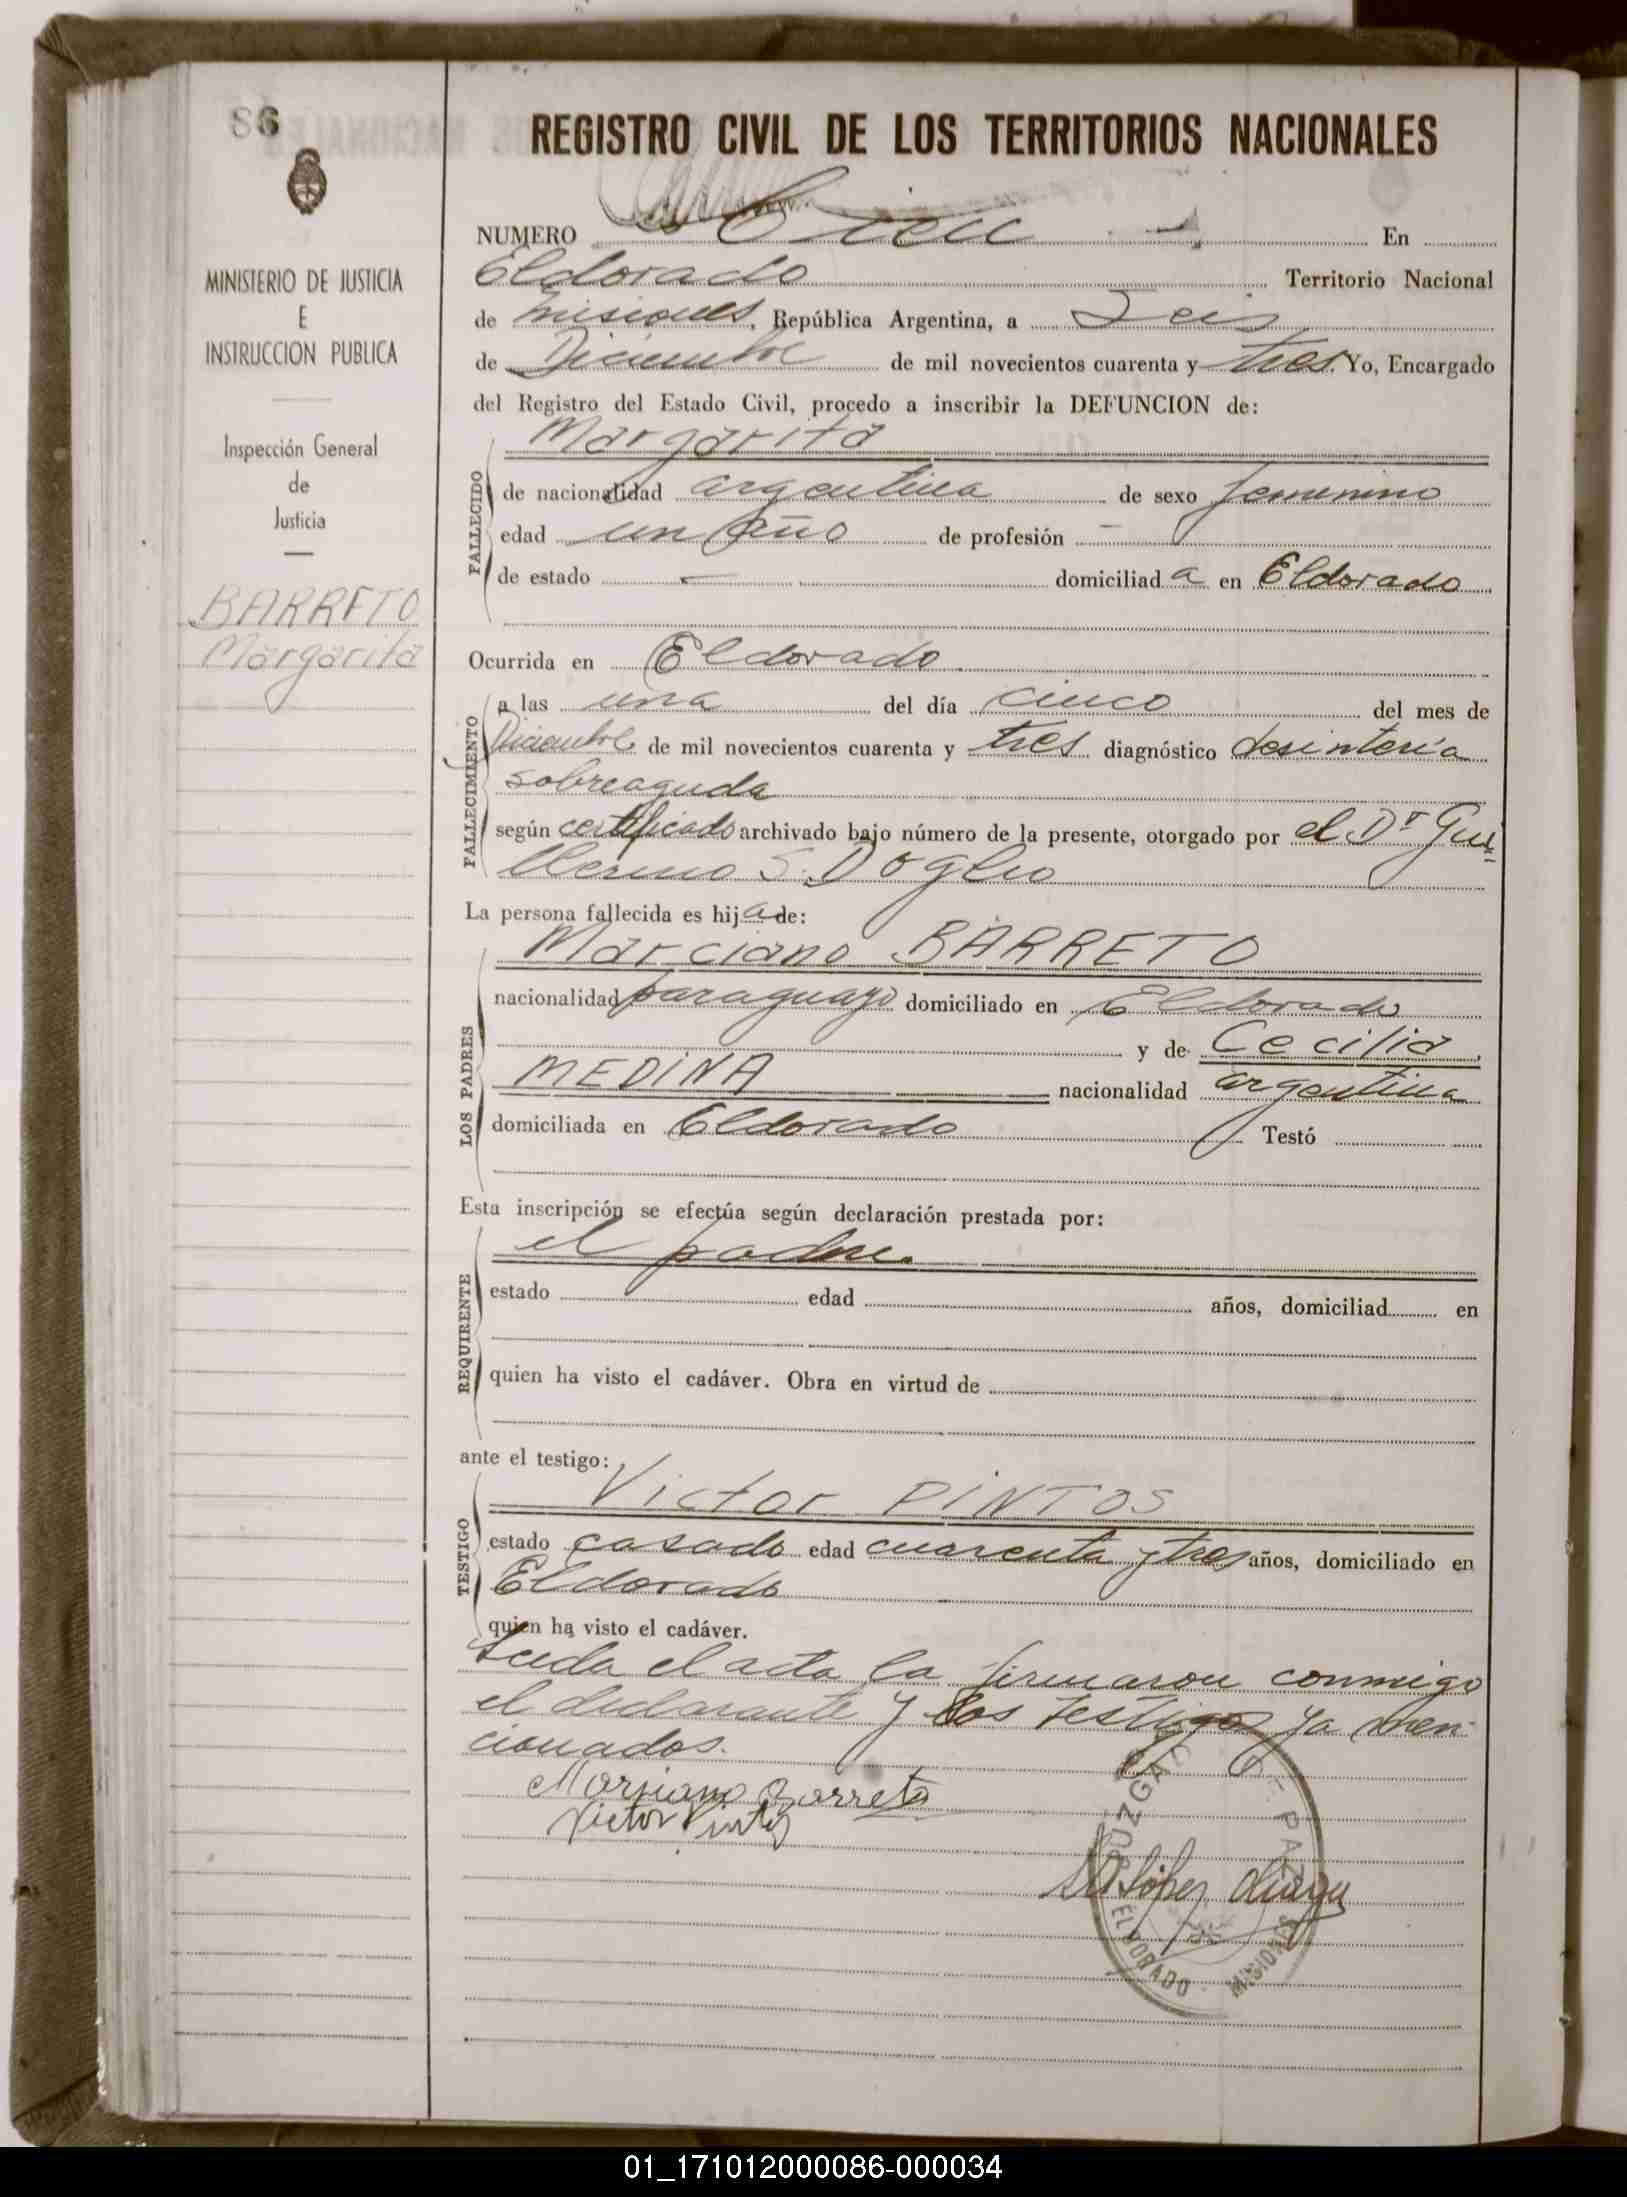 86
REGISTRO CIVIL DE LOS TERRITORIOS NACIONALES
MINISTERIO DE JUSTICIA
E
INSTRUCCION PUBLICA
Inspección General
de
Justicia
BARRETO
Margarita
NUMERO Cien En
Eldorado Territorio Nacional
de Misiones, República Argentina, a Seis
de Diciembre de mil novecientos cuarenta y tres. Yo, Encargado
del Registro del Estado Civil, procedo a inscribir la DEFUNCION de:
FALLECIDO
Margarita
de nacionalidad argentina de sexo femenino
edad un año de profesión —
de estado — domiciliad a en Eldorado
Ocurrida en Eldorado
FALLECIMIENTO
a las una del día cinco del mes de
Diciembre de mil novecientos cuarenta y tres diagnóstico desintería
sobreaguda
según certificado archivado bajo número de la presente, otorgado por el Dr Gui
llermo S. Doglio
La persona fallecida es hij a de:
LOS PADRES
Marciano BARRETO
nacionalidad paraguayo domiciliado en Eldorado
y de Cecilia
MEDINA nacionalidad argentina
domiciliada en Eldorado Testó
Esta inscripción se efectúa según declaración prestada por:
REQUIRENTE
el padre.
estado edad años, domiciliad en
quien ha visto el cadáver. Obra en virtud de
ante el testigo:
TESTIGO
Victor PINTOS
estado casado edad cuarenta y tres años, domiciliado en
Eldorado
quien ha visto el cadáver.
Leida el acta la firmaron conmigo
el declarante y los testigos ya men-
cionados.
Marsiano Barreto
Victor Pintos
JUZGADO DE PAZ
ELDORADO - MISIONES
López
01_171012000086-000034